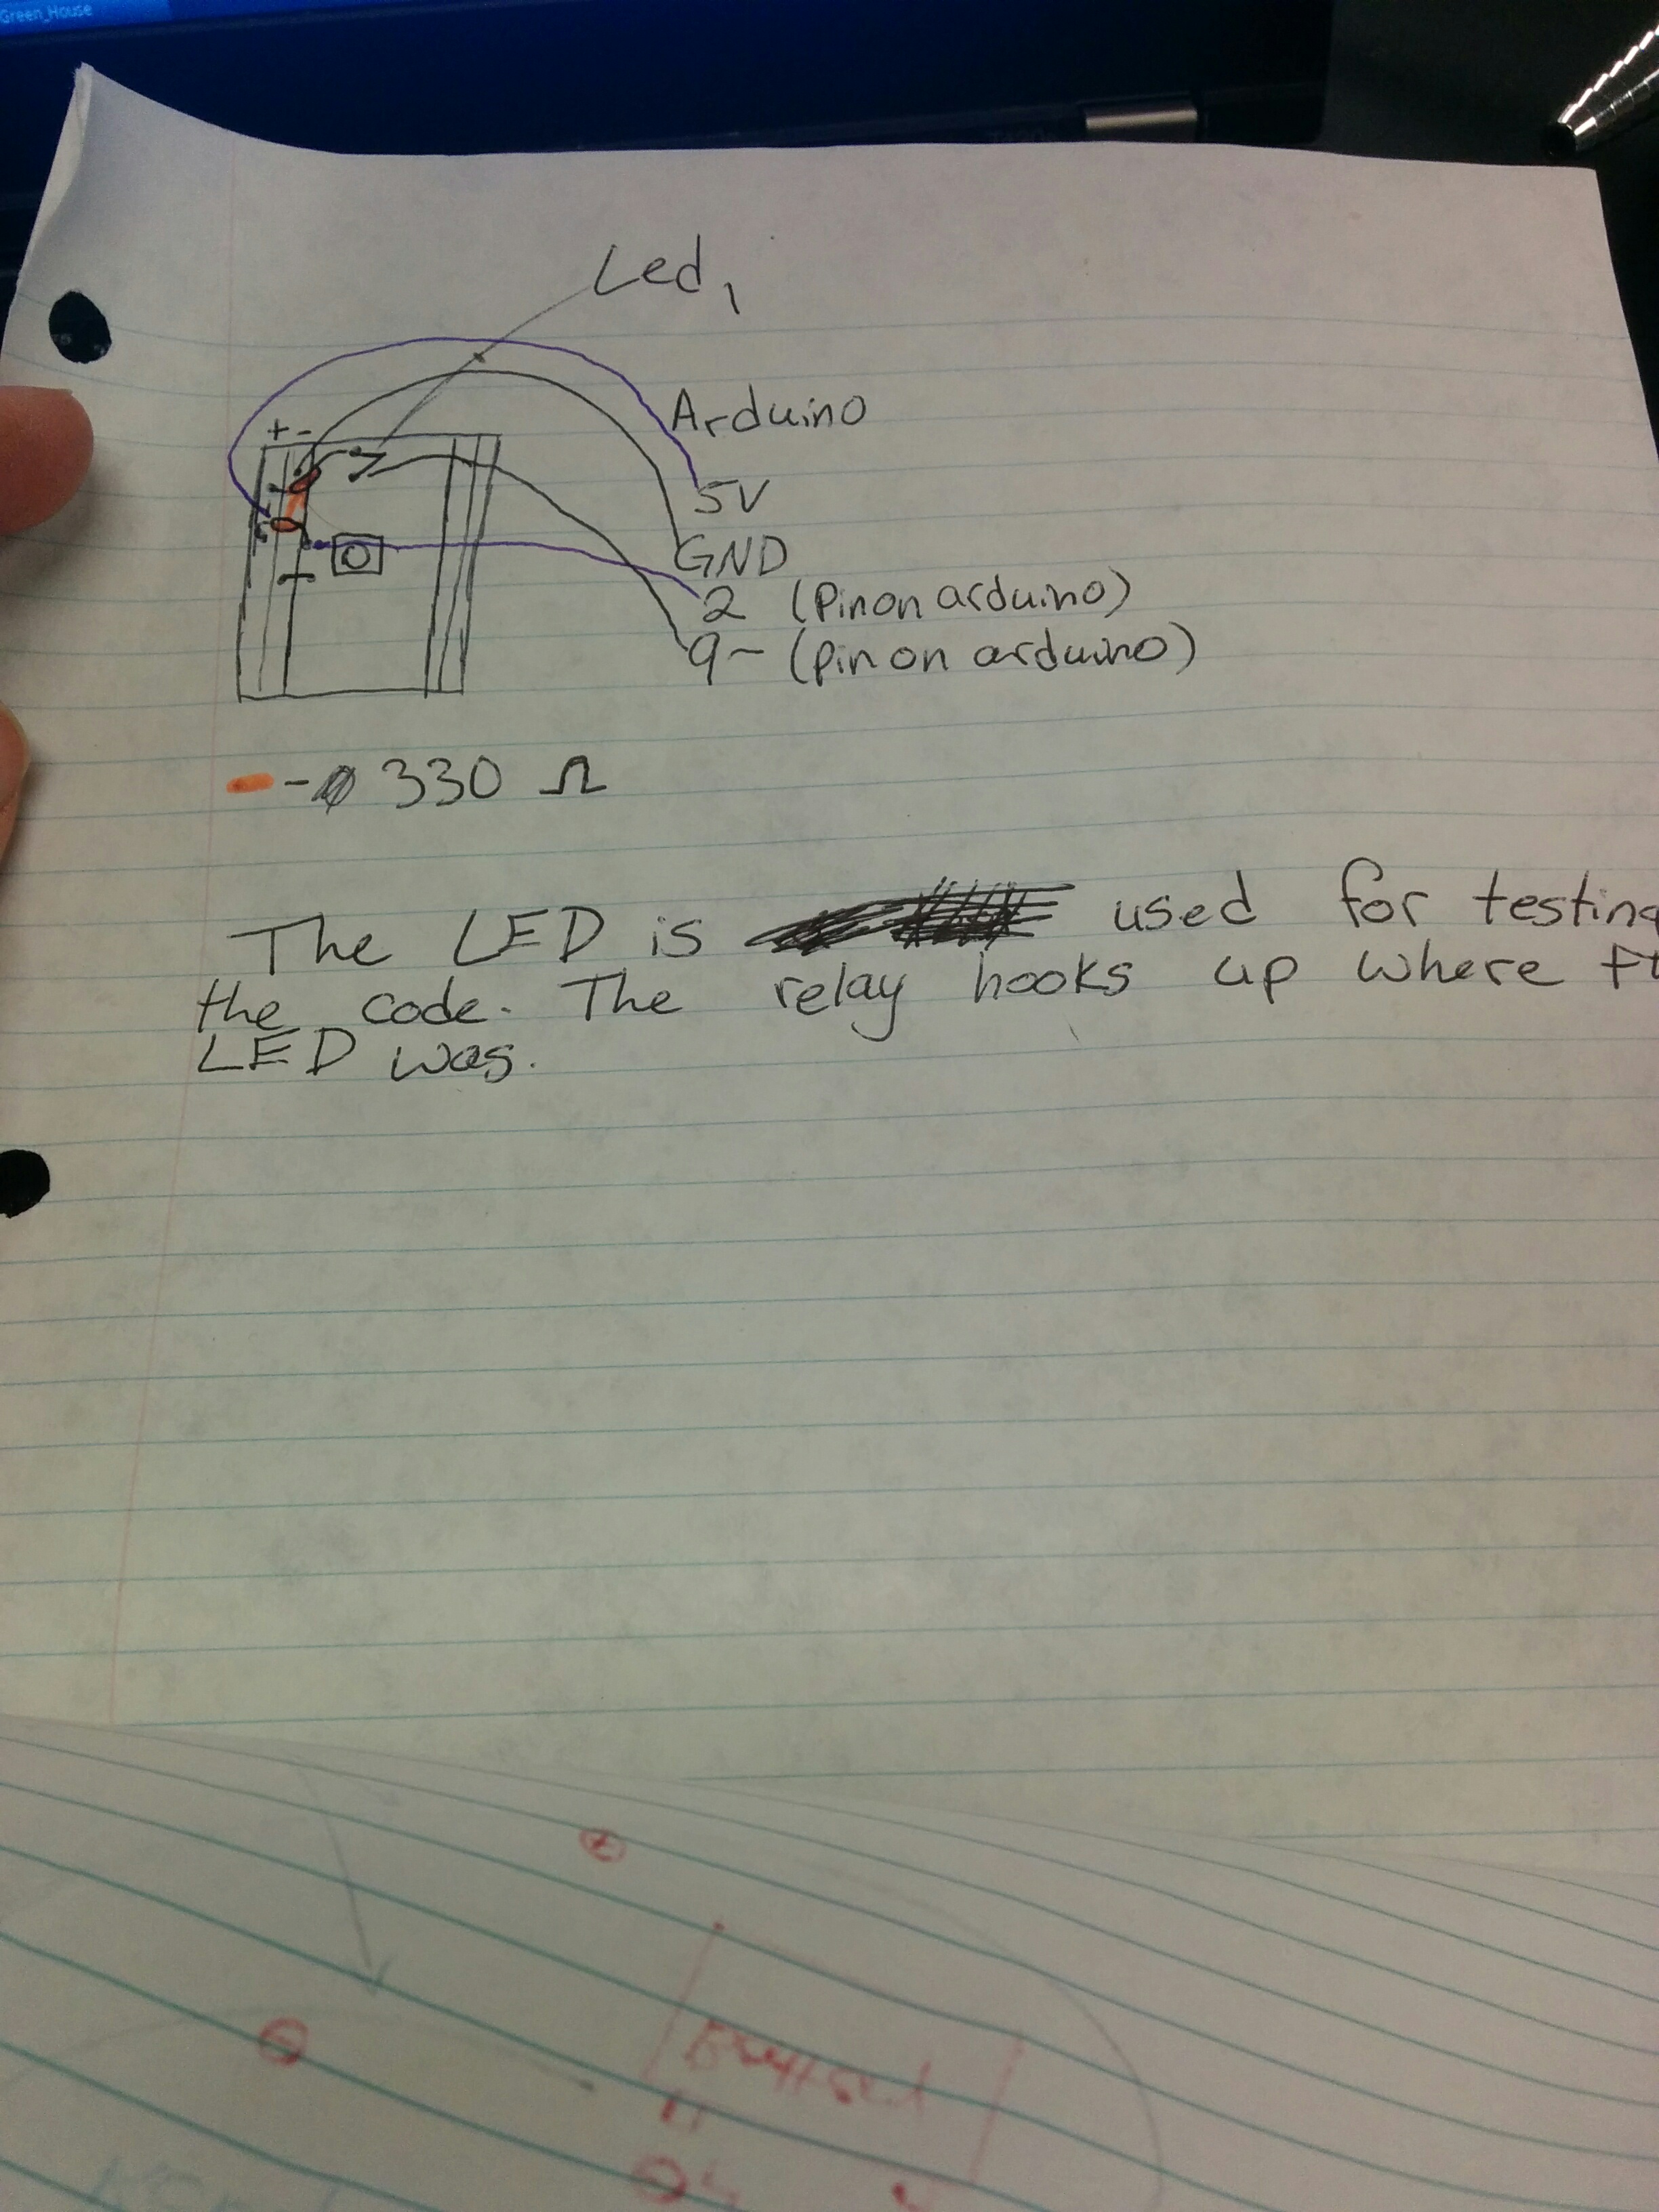 Green_House
Led 1
Arduino
+ -
5V
GND
2 (Pin on arduino)
9~ (pin on arduino)
- 330 Ω
The LED is used for testing
the code. The relay hooks up where
LED was.